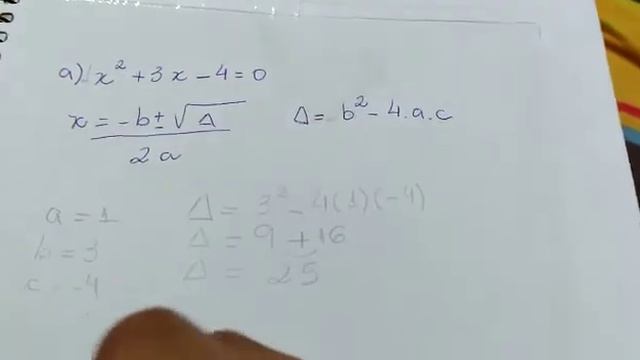 a) x² + 3x - 4 = 0
x = -b ± √Δ Δ = b² - 4.a.c
2a
a = 1 Δ = 3² - 4(1)(-4)
b = 3 Δ = 9 + 16
c = -4 Δ = 25